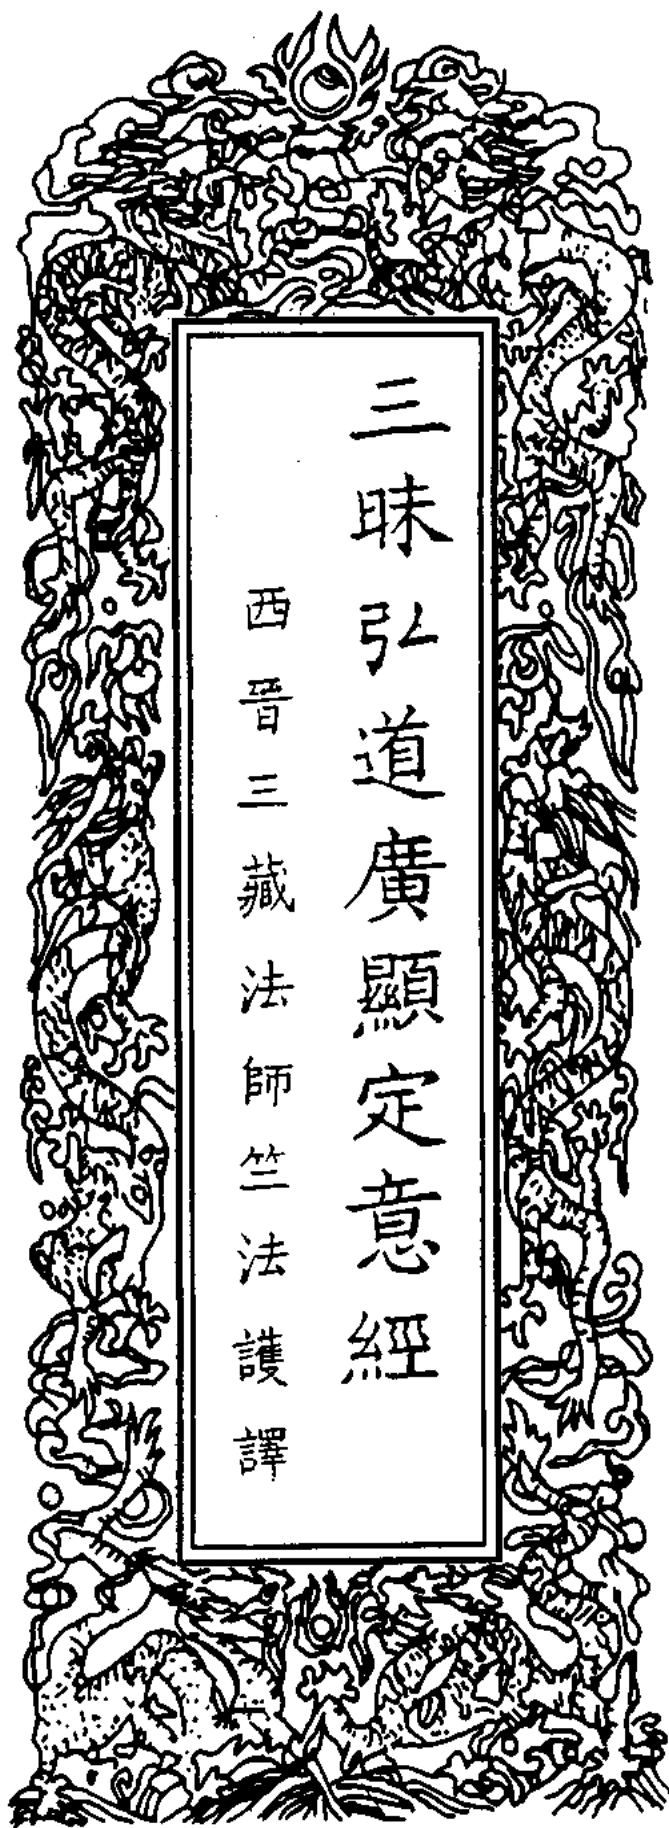 三昧弘道廣顯定意經
西晉三藏法師竺法護譯